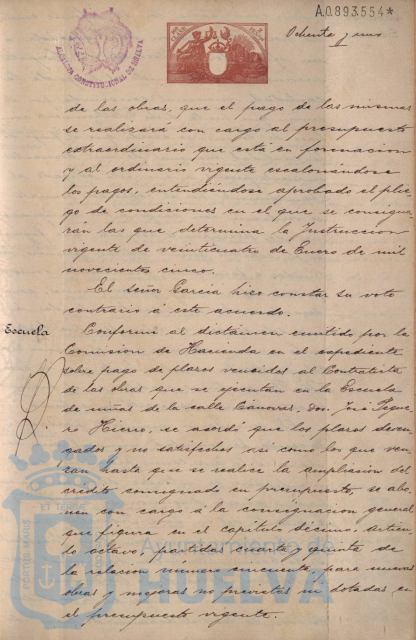 A.0.893.554*
Ochenta y uno
ALCALDIA CONSTITUCIONAL DE HUELVA
de las obras, que el pago de las mismas
se realizará con cargo al presupuesto
extraordinario que está en formacion
y al ordinario vigente escalonándose
los pagos, entendiéndose aprobado el plie
go de condiciones en el que se consigna
ran las que determina la Instruccion
vigente de veinticuatro de Enero de mil
novecientos cinco.
El señor García hizo constar su voto
contrario á este acuerdo.
Escuela
Conforme al dictámen emitido por la
Comision de Hacienda en el expediente
sobre pago de plazos vencidos al Contratista
de las obras que se ejecutan en la Escuela
de niñas de la calle Cánovas, Don José Segue
ro Hierro, se acordó que los plazos deven
gados y no satisfechos asi como los que ven
zan hasta que se realice la ampliasion del
crédito consignado en presupuesto, se abo
nen con cargo á la consignacion general
que figura en el capítulo décimo, artícu
lo octavo, partidas cuarta y quinta de
la relacion número cincuenta, para nuevas
obras y mejoras no previstas ni dotadas en
el presupuesto vigente.
Ayuntamiento de
HUELVA